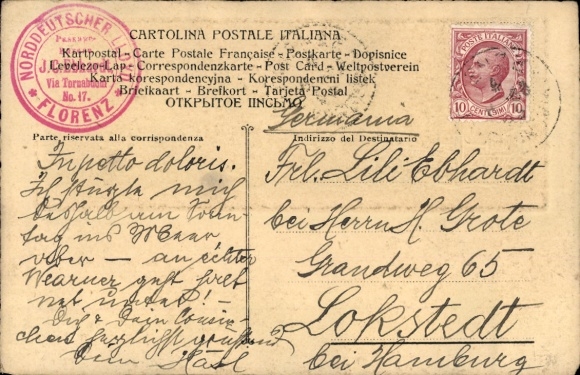 NORDDEUTSCHER
Via Tornabuoni
No. 17.
FLORENZ
CARTOLINA POSTALE ITALIANA.
Kartpostal - Carte Postale Française - Postkarte - Dopisnice
Levelezo-Lap - Correspondenzkarte - Post Card - Weltpostverein
Karta korespondencyjna - Korespondencni listek
Briefkaart - Brefkort - Tarjeta Postal
ОТКРЫТОЕ ПІСЬМО
POSTE ITALIANE
10 CENTESIMI 10
Germania
Parte riservata alla corrispondenza
Indirizzo del Destinatario
In petto doloris.
Ich stürzte mich
deshalb am Sonn-
tag ins Meer
aber – an echter
geht so leicht
net unter! –
Dich & Dein
herzlichst grüssend
Dein
Frl. Lili Ebhardt
bei Herrn H. Grote
Grandweg 65
Lokstedt
bei Hamburg